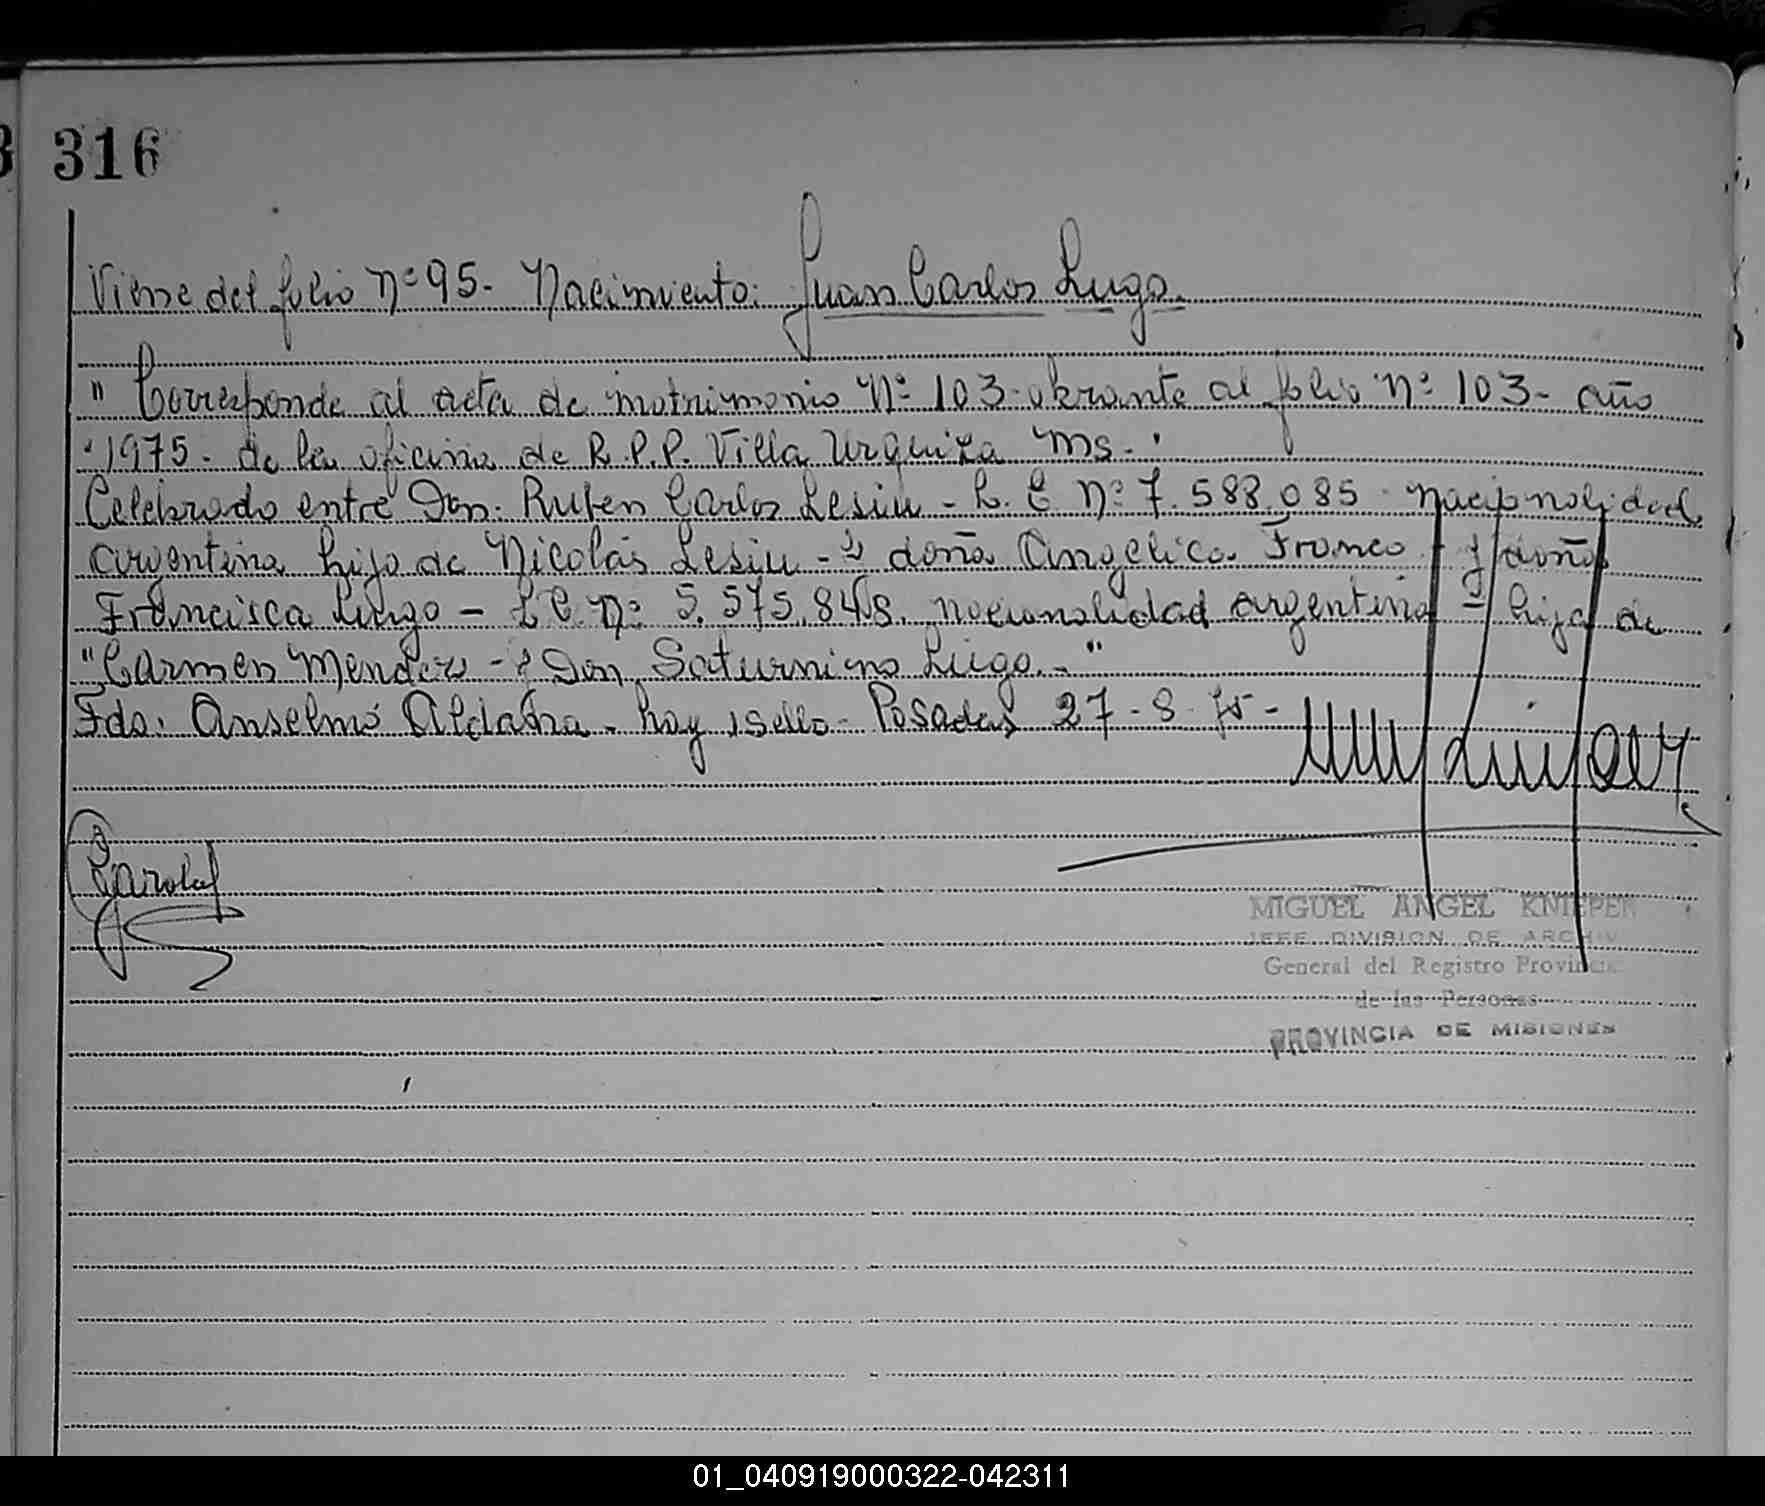 316
Viene del folio Nº 95- Nacimiento: Juan Carlos Lugo.
" Corresponde al acta de matrimonio Nº 103- obrante al folio Nº 103- año
"1975- de la oficina de R.P.P. Villa Urquiza Ms-.
Celebrado entre Don: Ruben Carlos Lesiu - L. E. Nº 7.588.085 - nacionalidad
argentina hijo de Nicolás Lesiu - y doña Angelica Franco - y doña
Francisca Lugo - L C. Nº 5.575.848. nacionalidad argentina - hija de
"Carmen Mendez - y Don Saturnino Lugo.-"
Fdo: Anselmo Aldama - hay sello - Posadas 27-8-75-
MIGUEL ANGEL KNIEPER
JEFE DIVISION DE ARCHIV
General del Registro Provincial
de las Personas
PROVINCIA DE MISIONES
01_040919000322-042311